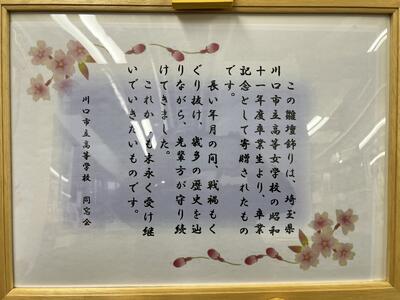 この雛壇飾りは、埼玉県
川口市立高等女学校の昭和
十一年度卒業生より、卒業
記念として寄贈されたもの
です。
長い年月の間、戦禍もく
ぐり抜け、幾多の歴史を辿
りながら、先輩方が守り続
けてきました。
これからも末永く受け継
いでいきたいものです。
川口市立高等学校 同窓会